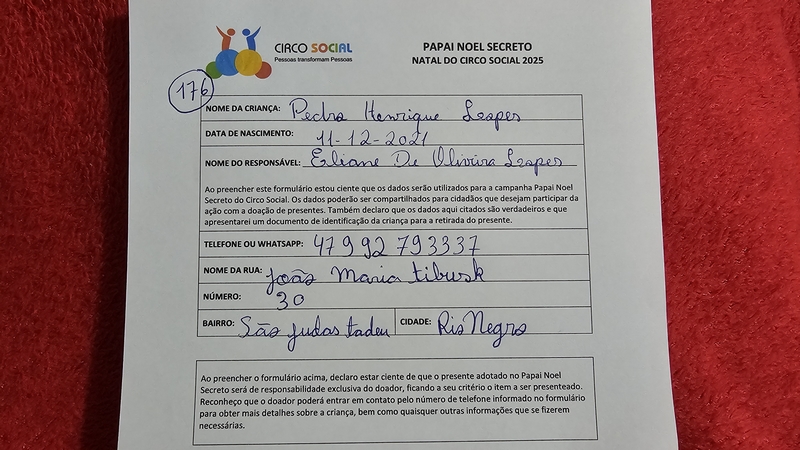 CIRCO SOCIAL
Pessoas transformam Pessoas
PAPAI NOEL SECRETO
NATAL DO CIRCO SOCIAL 2025
176
NOME DA CRIANÇA: Pedro Henrique Leapes
DATA DE NASCIMENTO: 11-12-2021
NOME DO RESPONSÁVEL: Eliane De Oliveira Leapes
Ao preencher este formulário estou ciente que os dados serão utilizados para a campanha Papai Noel
Secreto do Circo Social. Os dados poderão ser compartilhados para cidadãos que desejam participar da
ação com a doação de presentes. Também declaro que os dados aqui citados são verdadeiros e que
apresentarei um documento de identificação da criança para a retirada do presente.
TELEFONE OU WHATSAPP: 47 9 92 793337
NOME DA RUA: João Maria tibusk
NÚMERO: 30
BAIRRO: São judas tadeu CIDADE: Rio Negro
Ao preencher o formulário acima, declaro estar ciente de que o presente adotado no Papai Noel
Secreto será de responsabilidade exclusiva do doador, ficando a seu critério o item a ser presenteado.
Reconheço que o doador poderá entrar em contato pelo número de telefone informado no formulário
para obter mais detalhes sobre a criança, bem como quaisquer outras informações que se fizerem
necessárias.